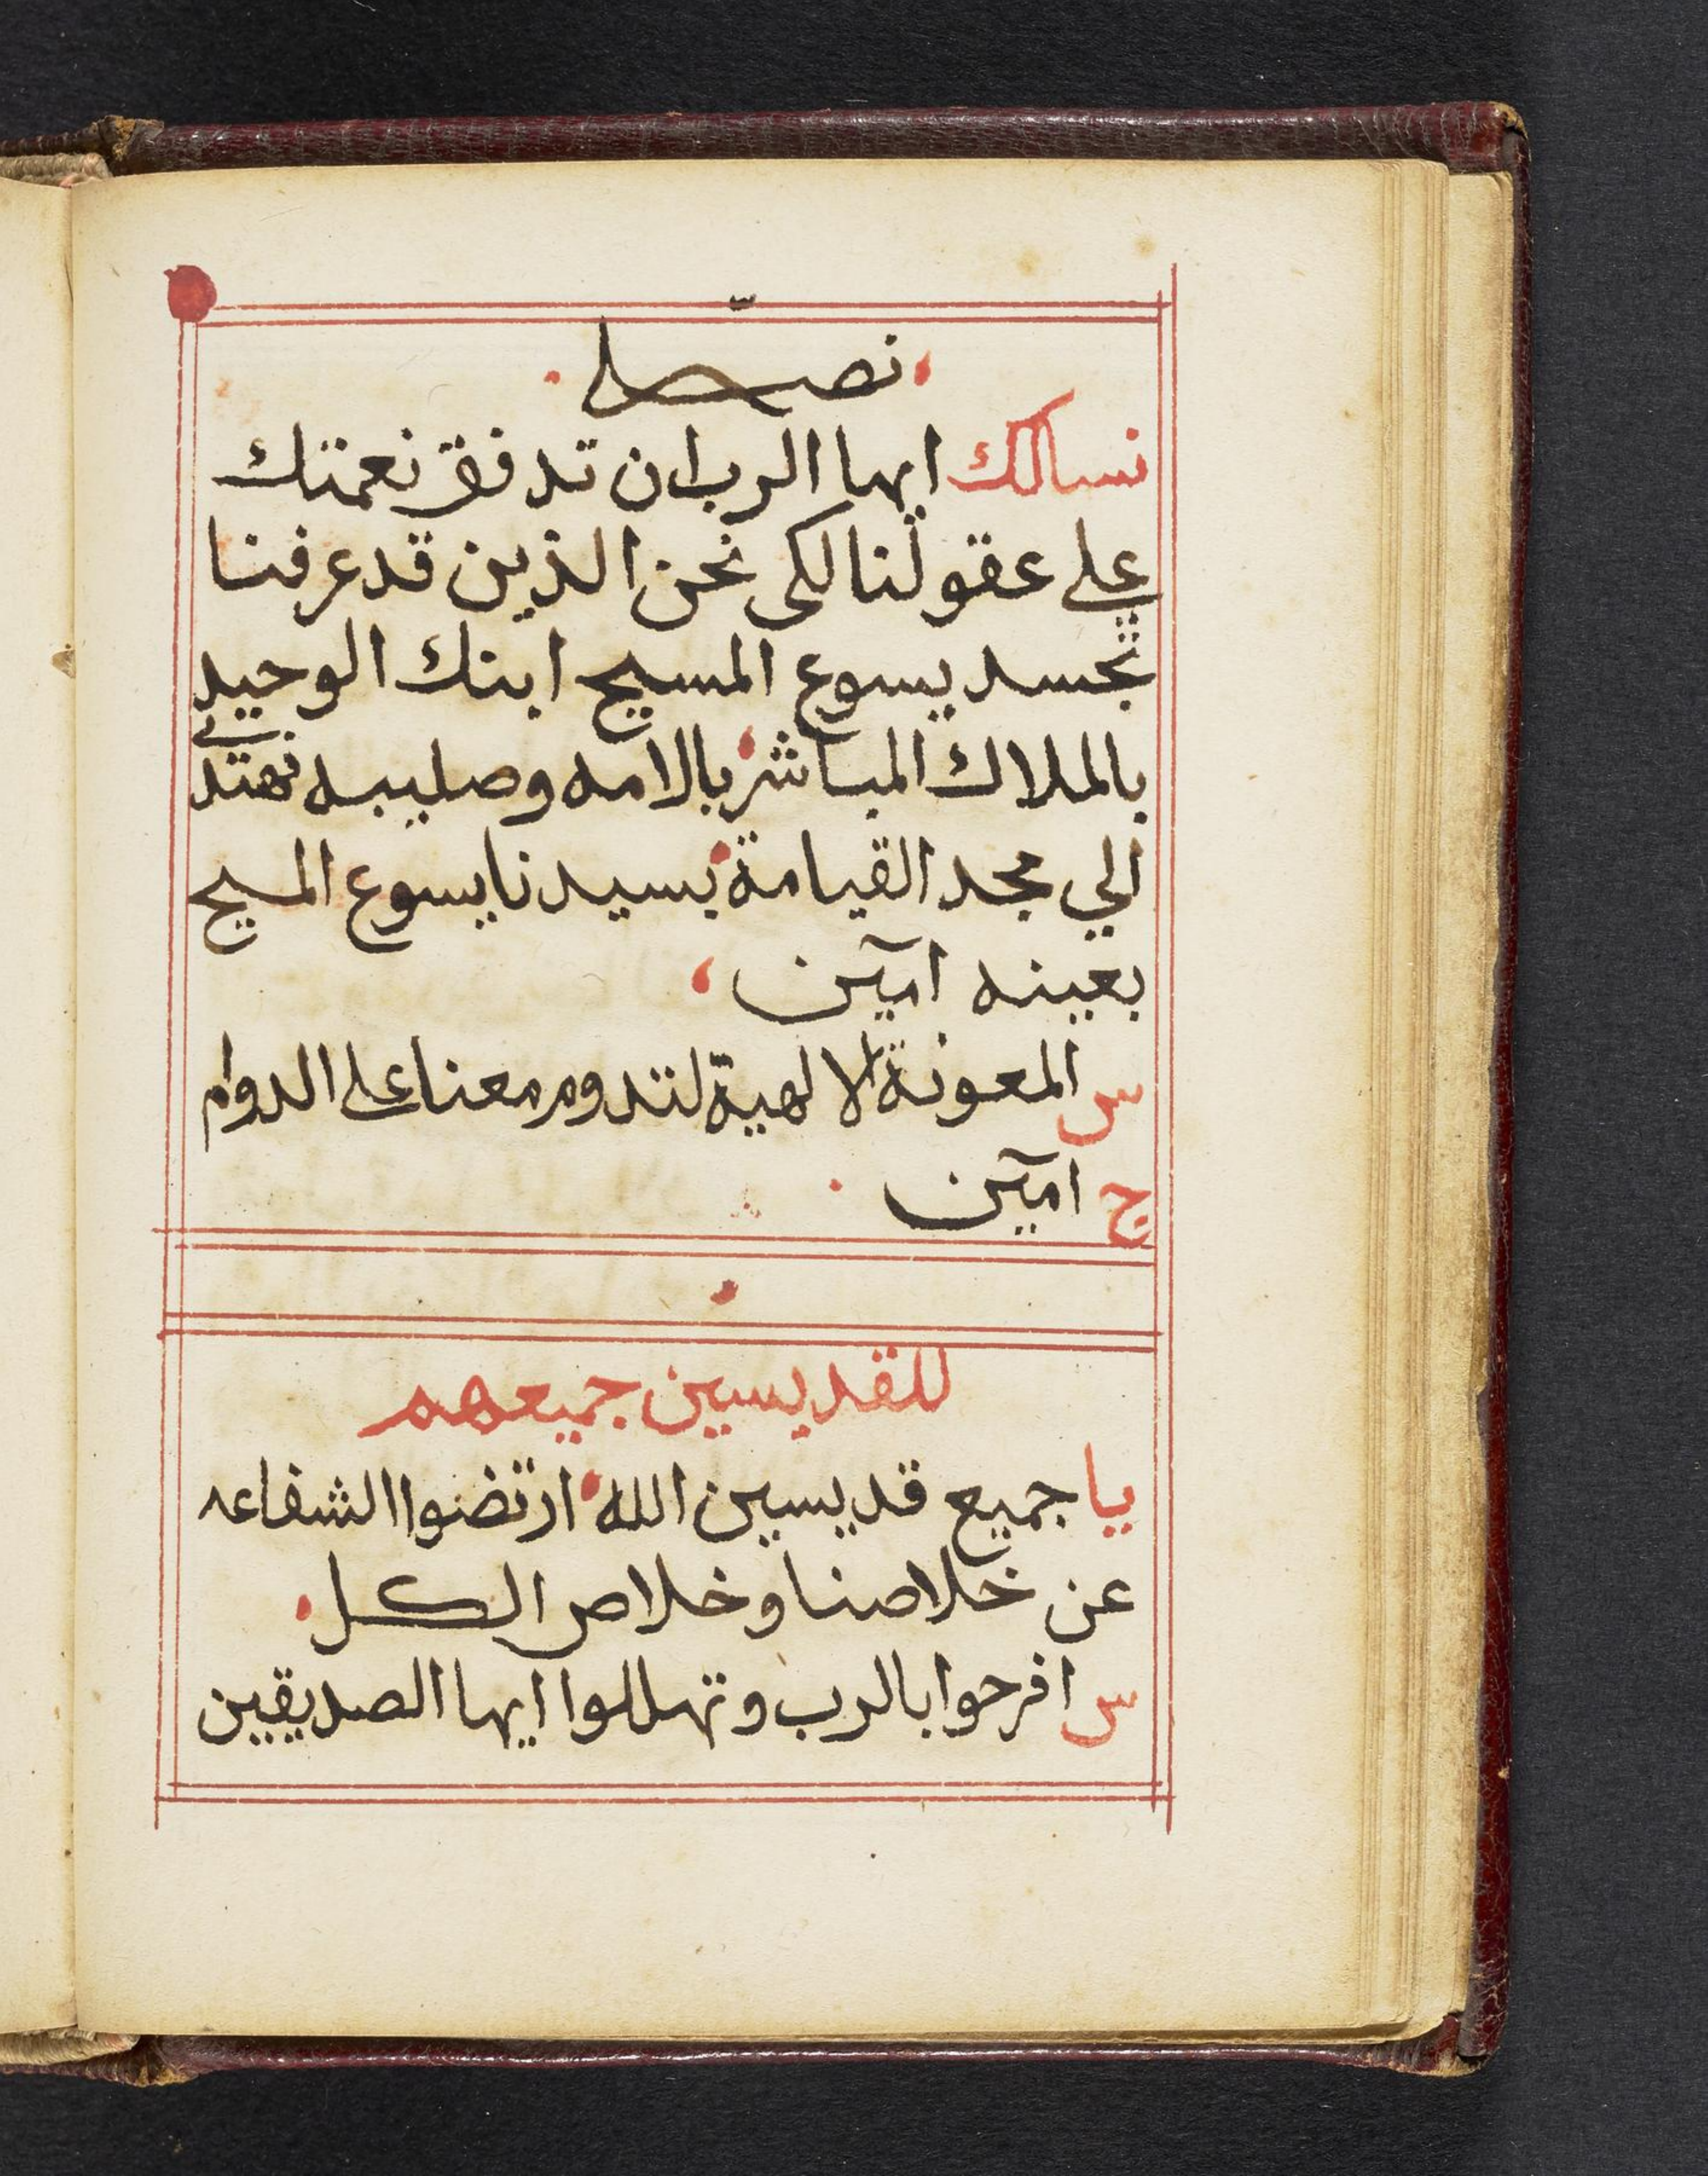 نصلي
نسالك ايها الرب ان تدفق نعمتك
علي عقولنا لكى نحن الذين قد عرفنا
تجسد يسوع المسيح ابنك الوحيد
بالملاك المباشر بالامه وصليبه نهتدي
الي مجد القيامة بسيدنا يسوع المسيح
بعينه امين
س المعونة الالهية لتدوم معنا علي الدوام
ج امين
للقديسين جميعهم
يا جميع قديسين الله ارتضوا الشفاعه
عن خلاصنا وخلاص الكل
س افرحوا بالرب وتهللوا ايها الصديقين